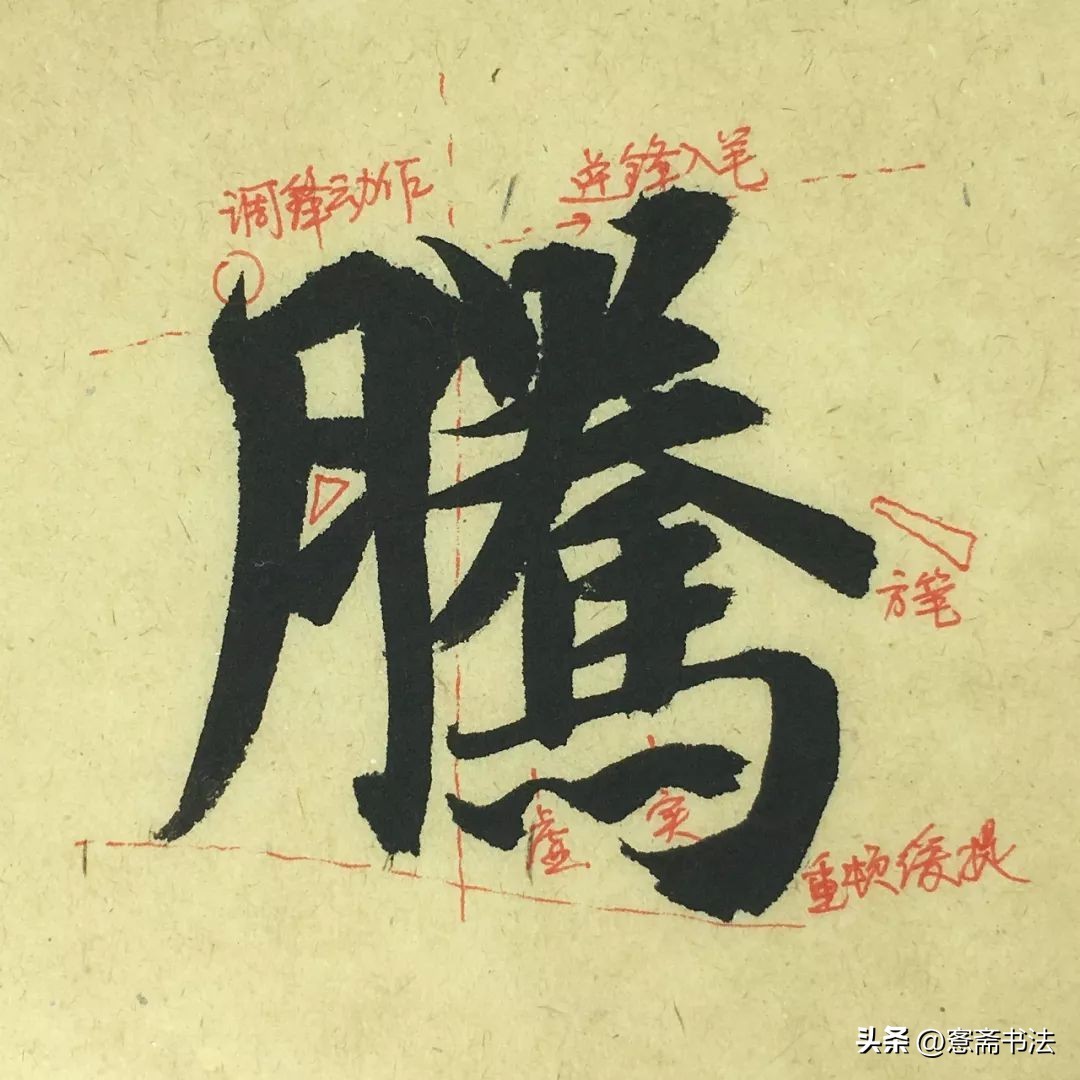 调锋动作
逆锋入笔
騰
方笔
虚 实
重顿缓提
头条 @愙斋书法